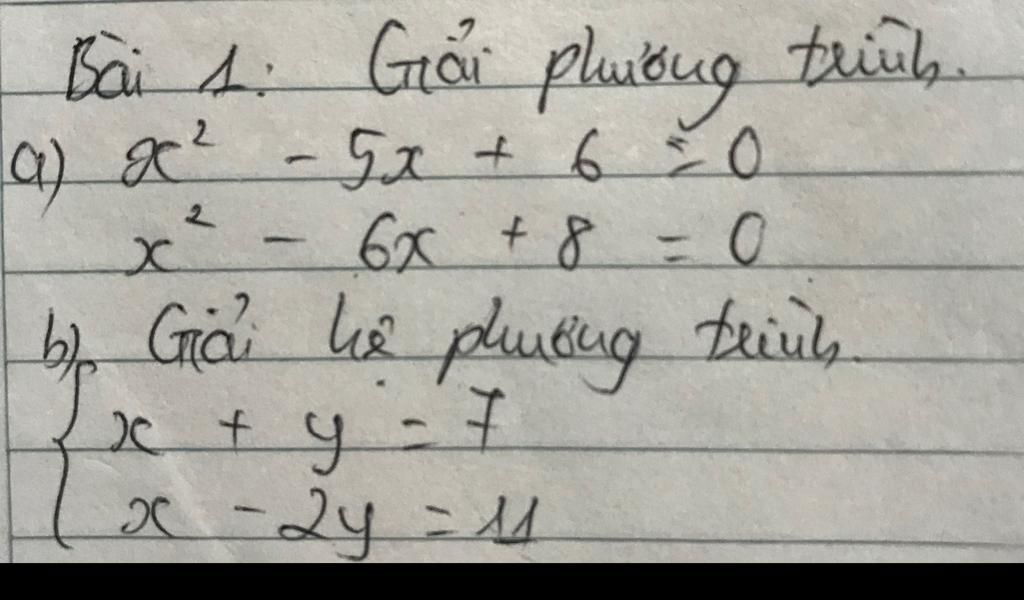 Bài 1: Giải phương trình.
a) x² - 5x + 6 = 0
x² - 6x + 8 = 0
b) Giải hệ phương trình.
{ x + y = 7
x - 2y = 11